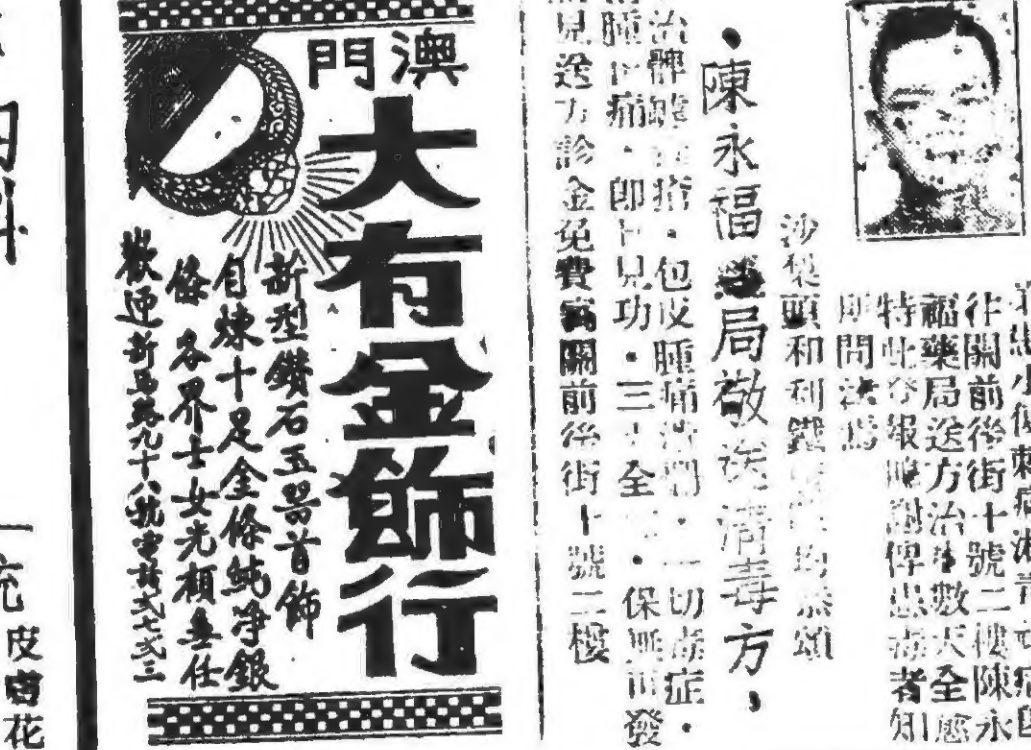 患小便刺痛
往關前後街十號二樓陳永
福藥局送方治數天全愈
特此登報鳴謝俾患毒者知
所問津焉
沙梨頭和利鐵 均恭頌
•陳永福藥局敬送清毒方,
治髀罅 指•包皮腫痛 •一切毒症•
腫 痛•即日見功•三 全 •保無再發
見送方診金免費寓關前後街十號二樓
澳門
大有金飾行
新型鑽石玉器首飾
自煉十足金條純净銀
條 各界士女光顧無任
歡迎新馬路九十八號電話弍七弍三
內科
皮膚花